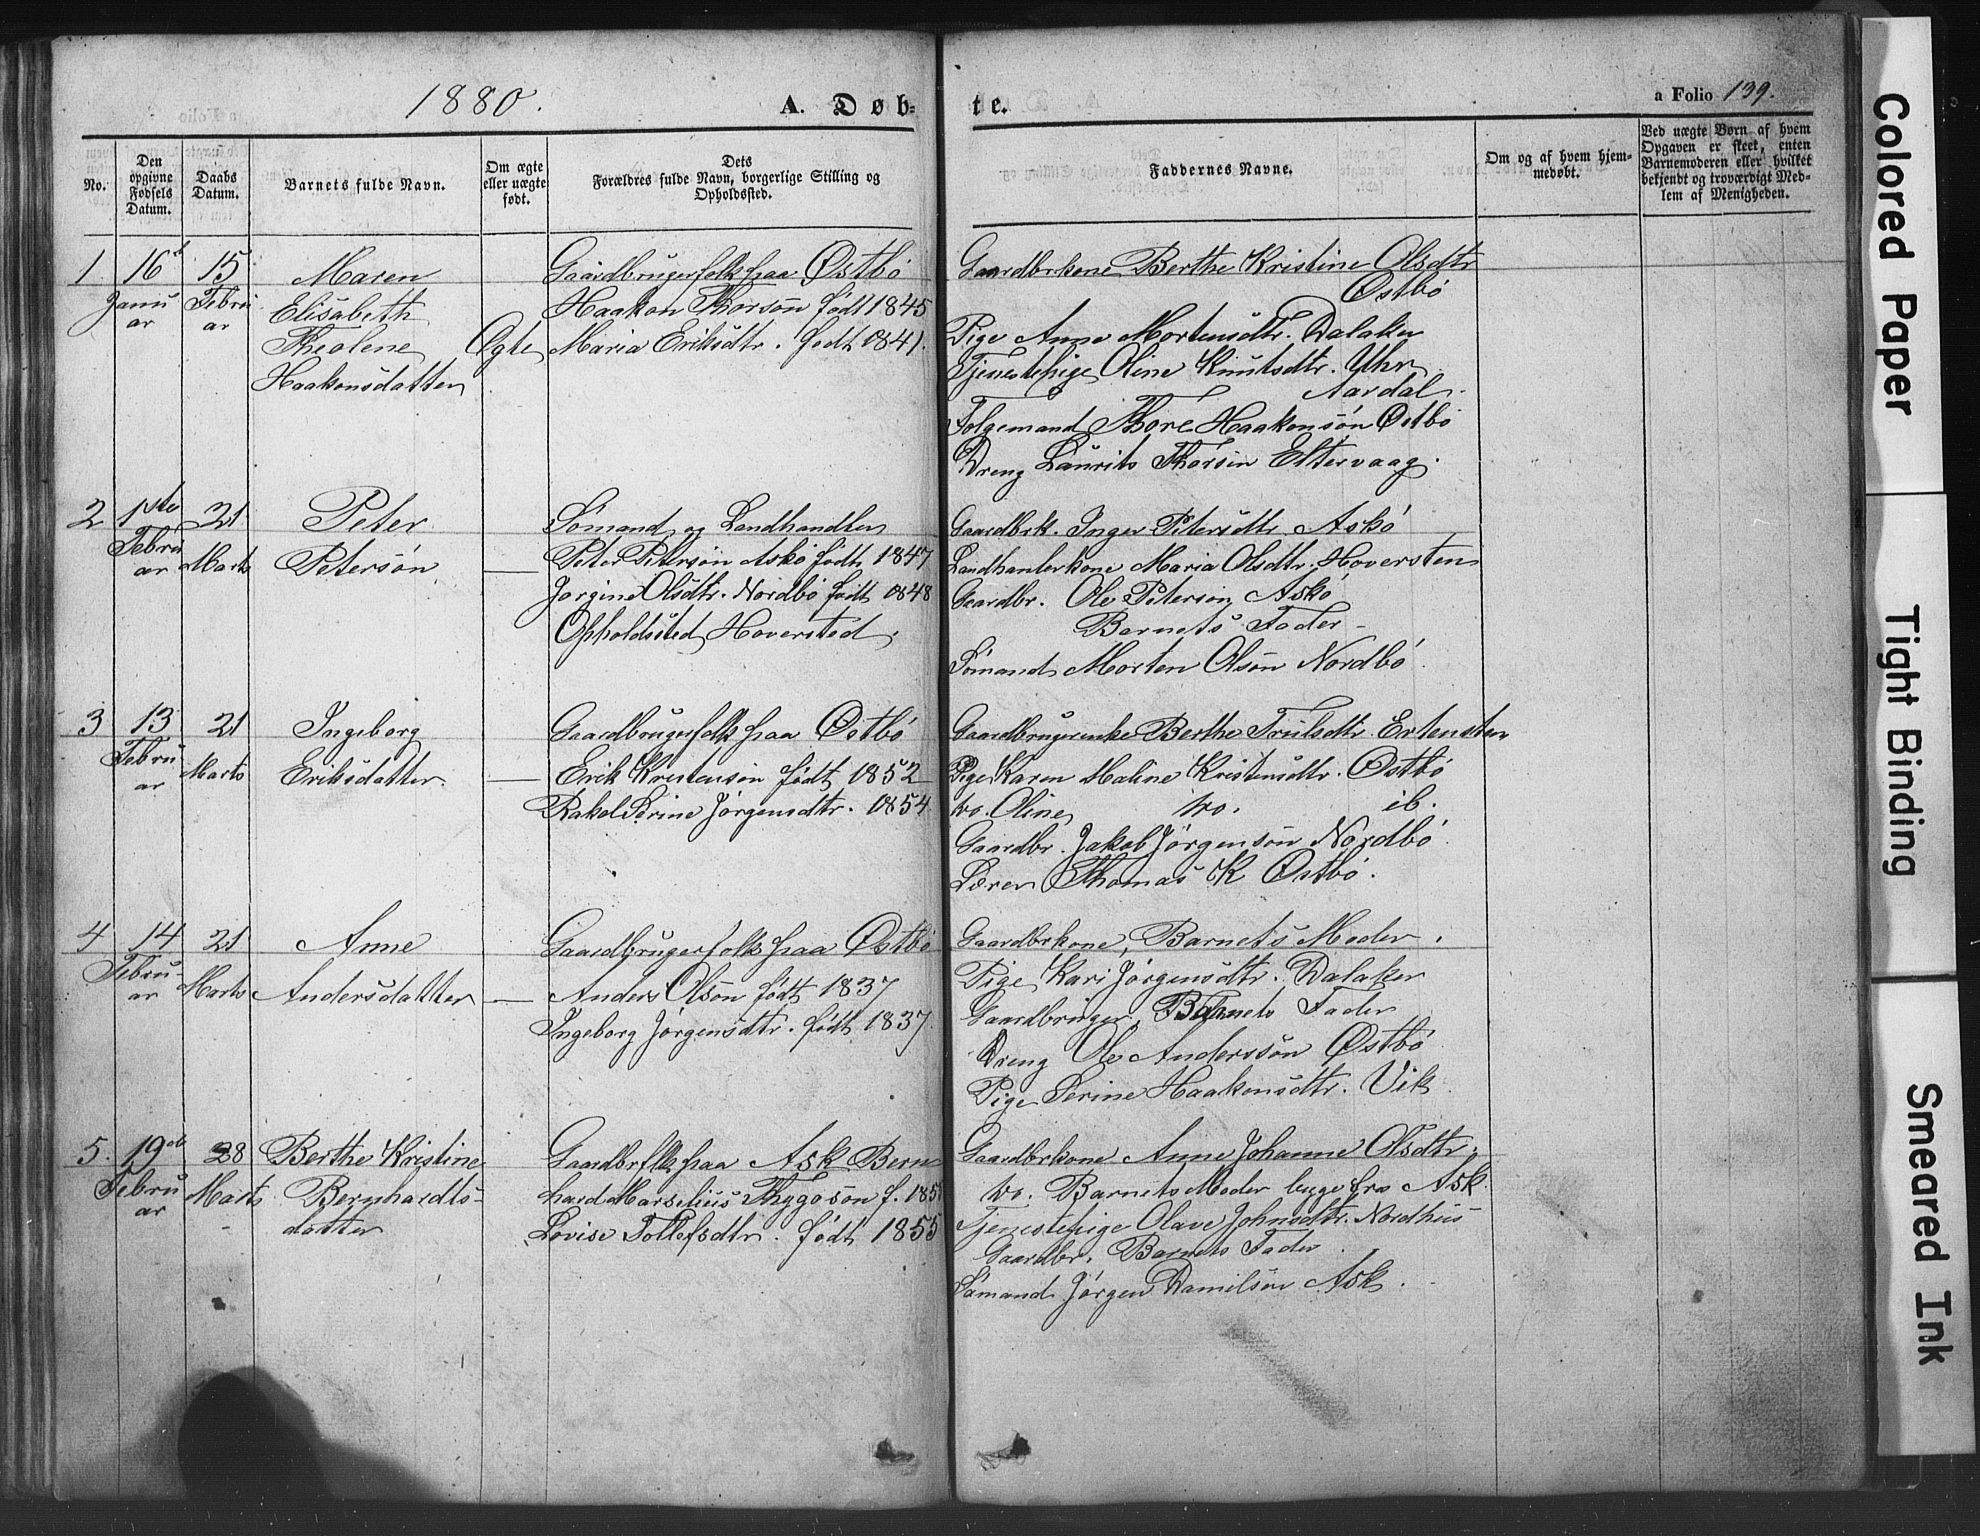 1880.
A. Døb-
te.
a Folio 139.
No.
Den
opgivne
Fødsels
Datum.
Daabs
Datum.
Barnets fulde Navn.
Om ægte
eller uægte
født.
Dets
Forældres fulde Navn, borgerlige Stilling og
Opholdssted.
Faddernes Navne.
Om og af hvem hjem-
medøbt.
Ved uægte Børn af hvem
Opgaven er skeet, enten
Barnemoderen eller hvilket
bekjendt og troværdigt Med-
lem af Menigheden.
1
16d
Janu
ar
15
Febru
ar
Maren
Elisabeth
Theolene
Haakonsdatter
Ægte
Gaardbrugerfolk paa Østbø
Haakon Thorsøn født 1845
Maria Eriksdtr. født 1841.
Gaardbrkone Berthe Kristine Olsdtr
Østbø
Pige Anne Mortensdtr. Dalaker
Tjenestepige Oline Knutsdtr. Uhr
Aardal.
Folgemand Thore Haakonsøn Østbø
Dreng Laurits Thorsen Eltervaag.
2
1ste
Febru
ar
21
Marts
Peter
Petersøn
—
Sømand og Landhandler
Peter Petersøn Askø født 1847
Jorgine Olsdtr. Nordbø født 1848
Opholdssted Hoversted.
Gaardbrk. Inger Petersdtr Askø
Landhanlerkone Maria Olsdtr. Hoversten
Gaardbr. Ole Petersøn Askø
Barnets Fader
Sømand Morten Olsøn Nordbø
3
13
Febru
ar
21
Marts
Ingeborg
Eriksdatter.
—
Gaardbrugerfolk paa Østbø
Erik Kristensøn født 1852
Rakel Serine Jørgensdtr. 1854
Gaardbrugerenke Berthe Truelsdtr. Ertensten
Pige Karen Maline Kristensdtr. Østbø
do. Oline do. ib.
Gaardbr. Jakob Jørgensøn Nordbø.
Lærer Thomas K Østbø.
4
14
Febru-
ar
21
Marts
Anne
Andersdatter
—
Gaardbrugerfolk paa Østbø
Anders Olsøn født 1837
Ingeborg Jørgensdtr. født 1837.
Gaardbrkone, Barnets Moder.
Pige Kari Jørgensdtr. Dalaker
Gaardbruger, Barnets Fader
Dreng Ole Anderssøn Østbø
Pige Serine Haakonsdtr. Vik
5.
19de
Febru
ar
28
Marts
Berthe Kristine
Bernhardts-
datter
Gaardbrflk paa Ask Bern
hard Marselius Thygesøn f. 1851
Lovise Tollefsdtr. født 1855
Gaardbrkone Anne Johanne Olsdtr,
do. Barnets Moder begge fra Ask.
Tjenestepige Olave Johnsdtr. Nordhus
Gaardbr. Barnets Fader.
Sømand Jørgen Danielsøn Ask.
Colored Paper
Tight Binding
Smeared Ink